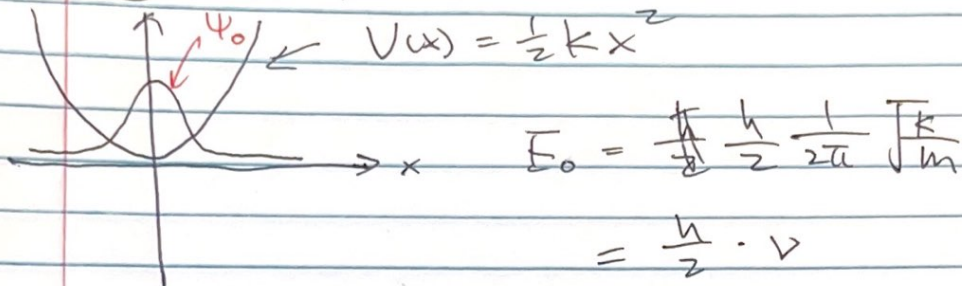 Ψ₀ V(x) = ½ k x²
x E₀ = h/2 1/2π √k/m
= h/2 · ν